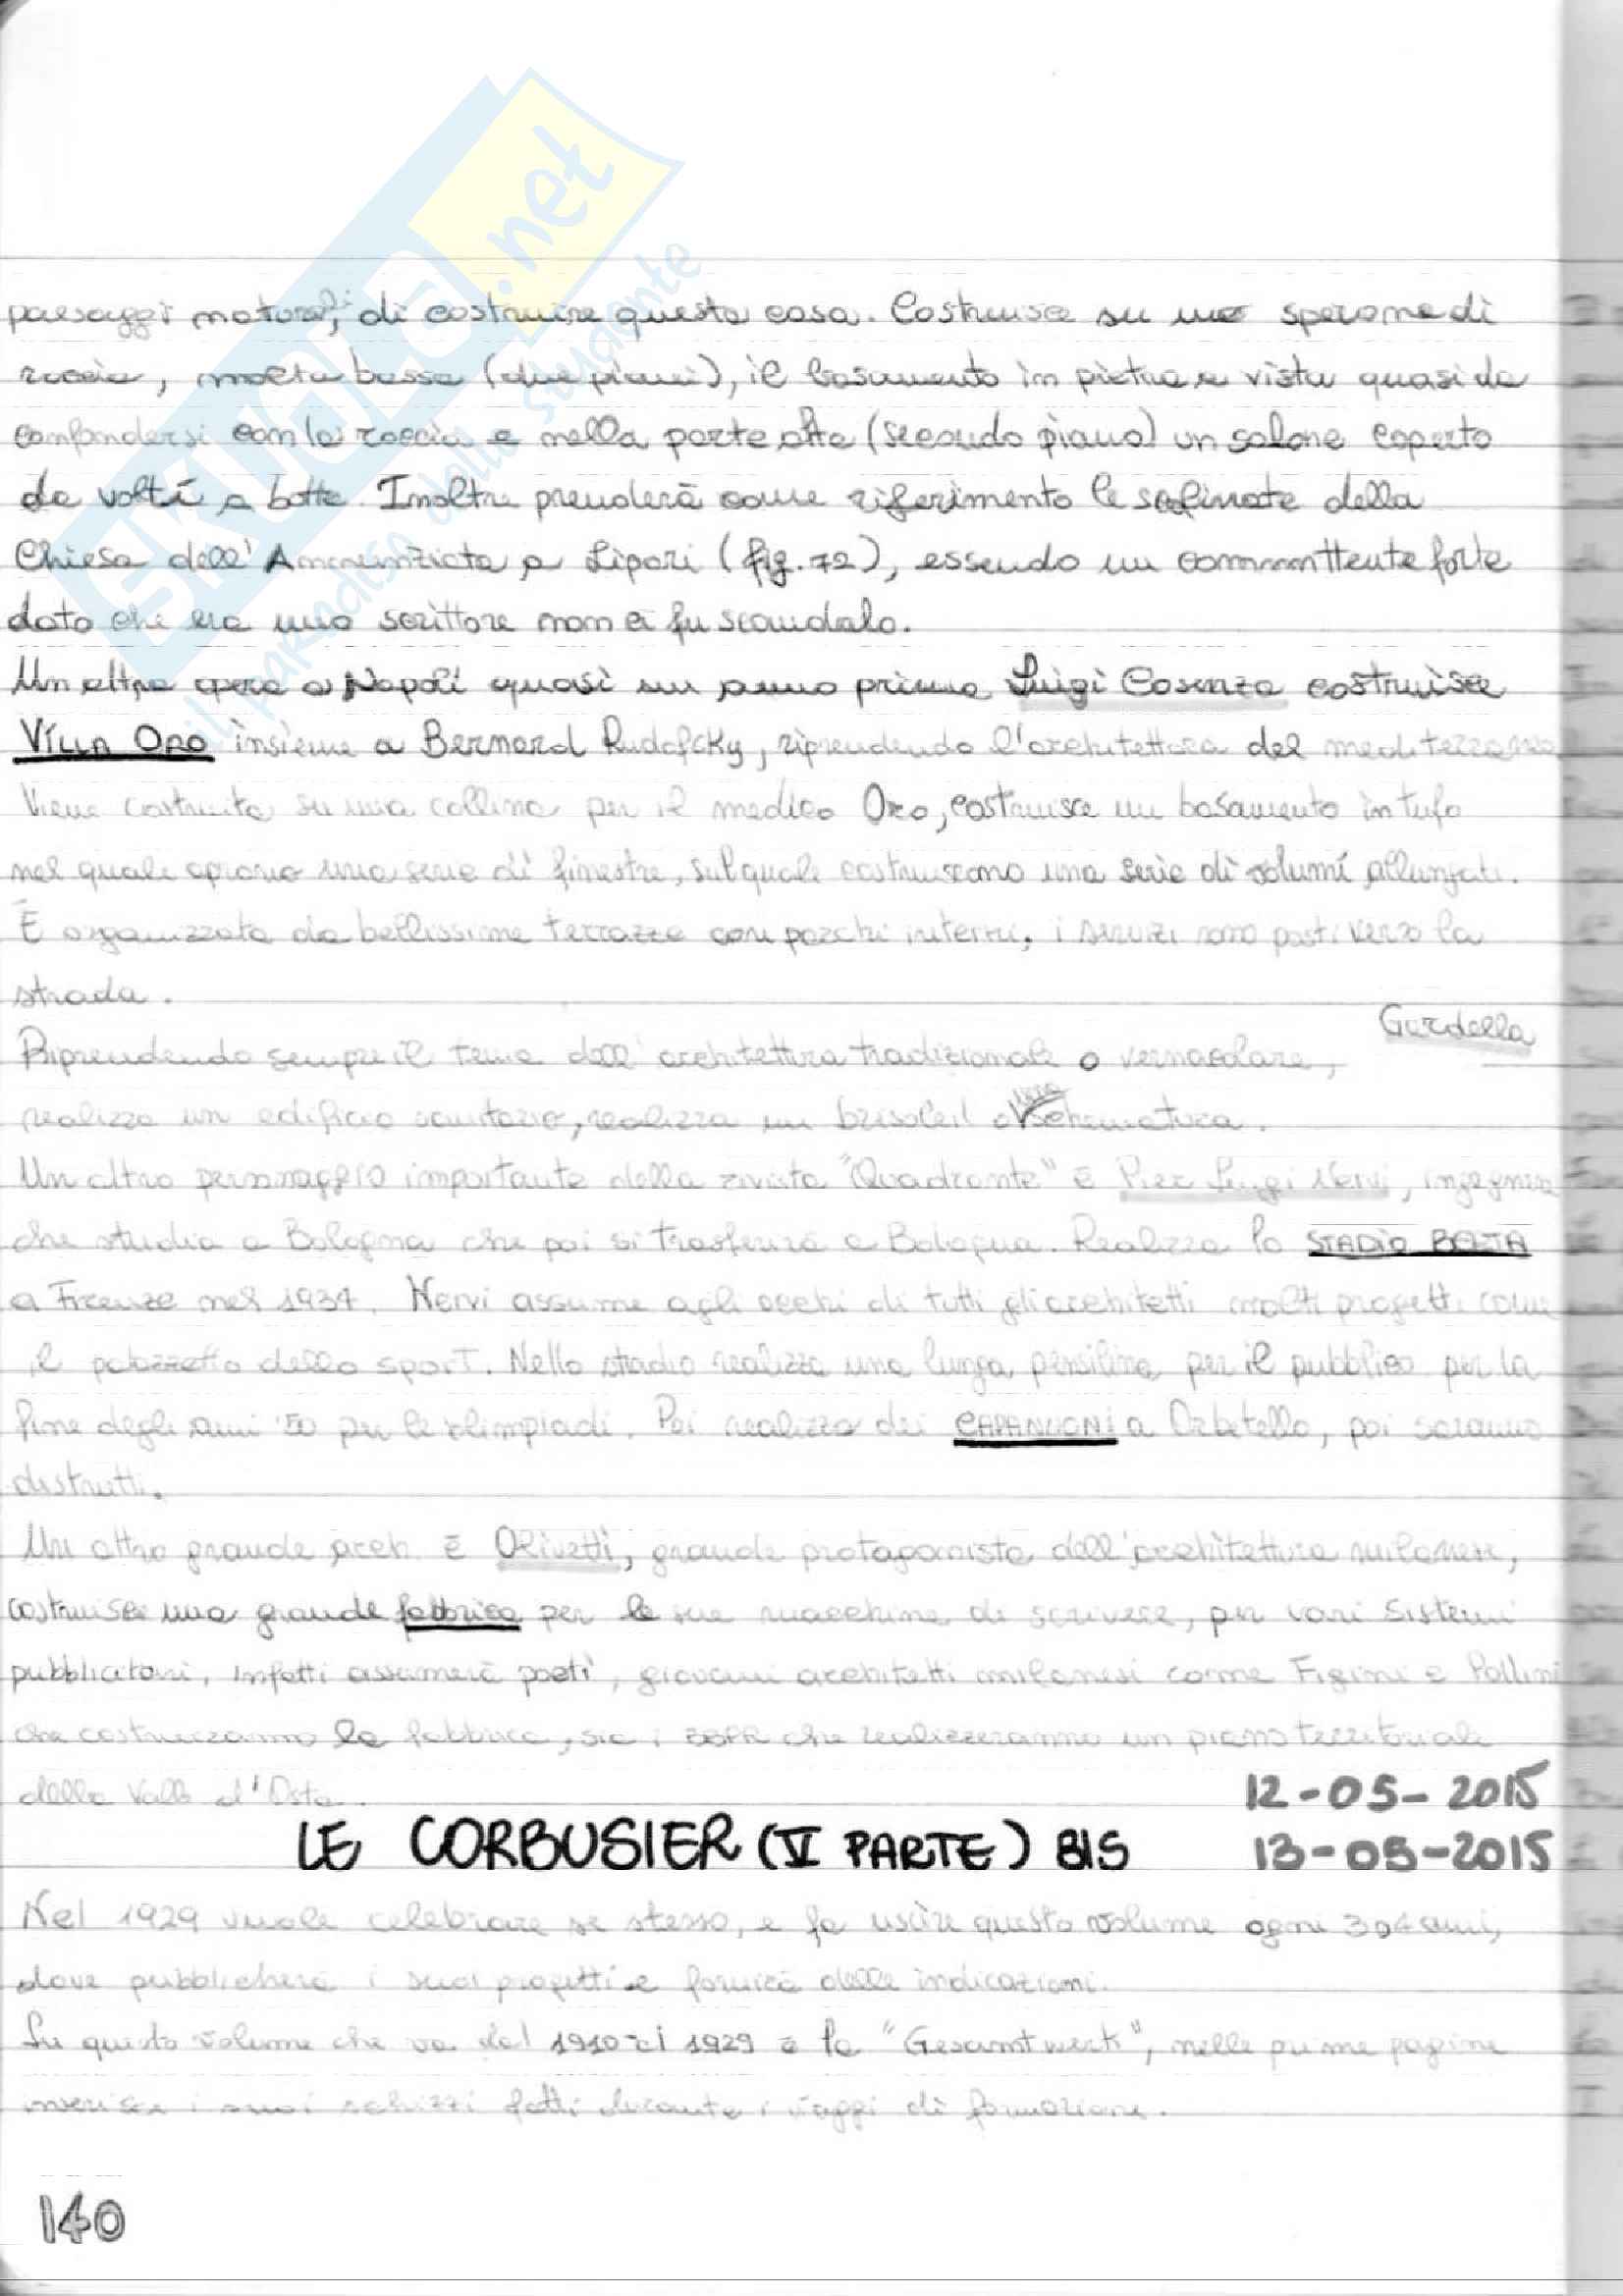 SKUOLA.net
il paradiso dello studente
paesaggi naturali, di costruire questa casa. Costruisce su uno sperone di
roccia, molto bassa (due piani), il basamento in pietra a vista quasi da
confondersi con la roccia e nella parte alta (secondo piano) un salone coperto
da volti a botte. Inoltre prenderà come riferimento le scalinate della
Chiesa dell'Annunziata a Lipari (fig. 72), essendo un committente forte
dato che era uno scrittore non ci fu scandalo.
Un altra opera a Napoli quasi un anno prima Luigi Cosenza costruisce
VILLA ORO insieme a Bernard Rudofcky, riprendendo l'architettura del mediterraneo
Viene costruita su una collina per il medico Oro, costruisce un basamento in tufo
nel quale aprono una serie di finestre, sul quale costruiscono una serie di volumi allungati.
È organizzata da bellissime terrazze con parchi interni, i servizi sono posti verso la
strada.
Gardella
Riprendendo sempre il tema dell'architettura tradizionale o vernacolare,
realizza un edificio sanitario, realizza un brisoleil o schermatura.
Un altro personaggio importante della rivista "Quadrante" è Pier Luigi Nervi, ingegnere
che studia a Bologna che poi si trasferirà a Bologna. Realizza lo STADIO BERTA
a Firenze nel 1934. Nervi assume agli occhi di tutti gli architetti molti progetti come
il palazzetto dello sport. Nello stadio realizza una lunga pensilina per il pubblico per la
fine degli anni '50 per le olimpiadi. Poi realizza dei CAPANNONI a Orbetello, poi saranno
distrutti.
Un altro grande arch. è Olivetti, grande protagonista dell'architettura milanese,
costruisce una grande fabbrica per le sue macchine di scrivere, per vari sistemi
pubblicitari, infatti assumerà poeti, giovani architetti milanesi come Figini e Pollini
che costruiranno la fabbrica, sia i BBPR che realizzeranno un piano territoriale
della Valle d'Osta.
12-05-2015
LE CORBUSIER (V PARTE) BIS 13-05-2015
Nel 1929 vuole celebrare se stesso, e fa uscire questo volume ogni 3 o 4 anni,
dove pubblicherà i suoi progetti e fornirà delle indicazioni.
Su questo volume che va dal 1910 al 1929 è la "Gesamtwerk", nelle prime pagine
inserisce i suoi schizzi fatti durante i viaggi di formazione.
140